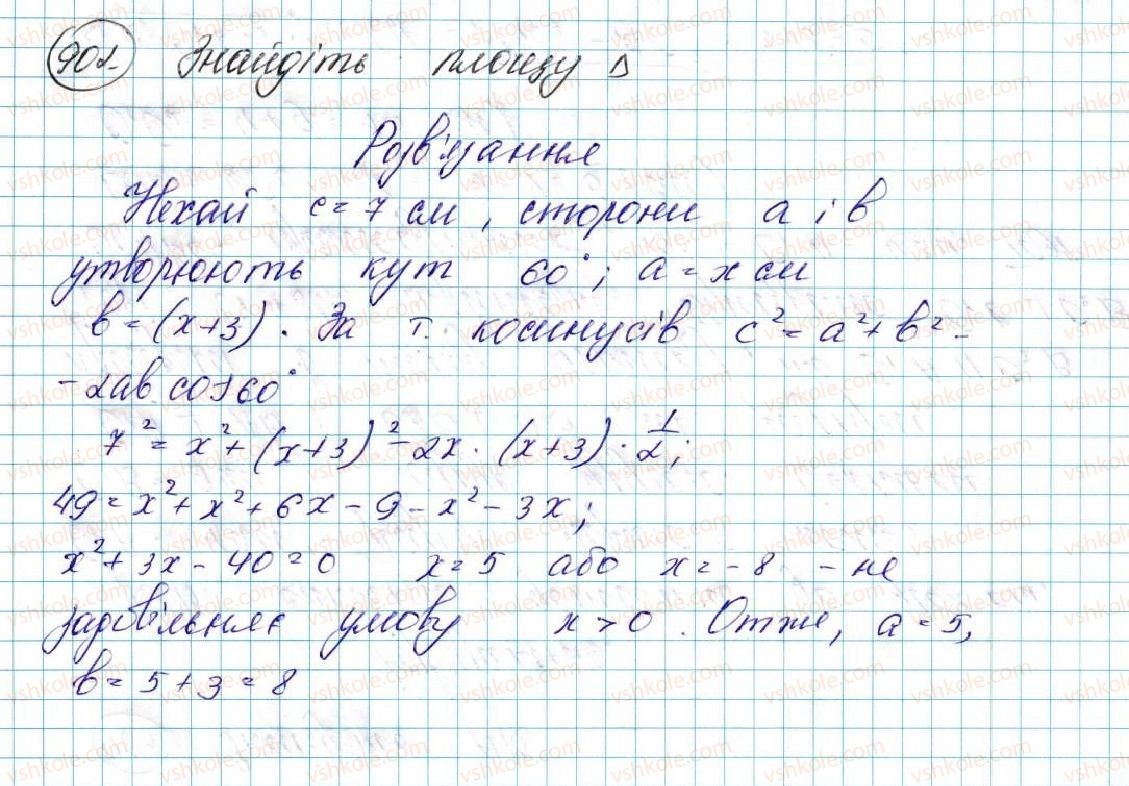 901. Знайдіть площу Δ
Розв'язання
Нехай c = 7 см, сторони a і b
утворюють кут 60°; a = x см
b = (x+3). За т. косинусів c² = a² + b² -
- 2ab cos 60°
7² = x² + (x+3)² - 2x · (x+3) · 1/2;
49 = x² + x² + 6x - 9 - x² - 3x;
x² + 3x - 40 = 0 x = 5 або x = -8 - не
задовільняє умову x > 0. Отже, a = 5,
b = 5 + 3 = 8
vshkole.com